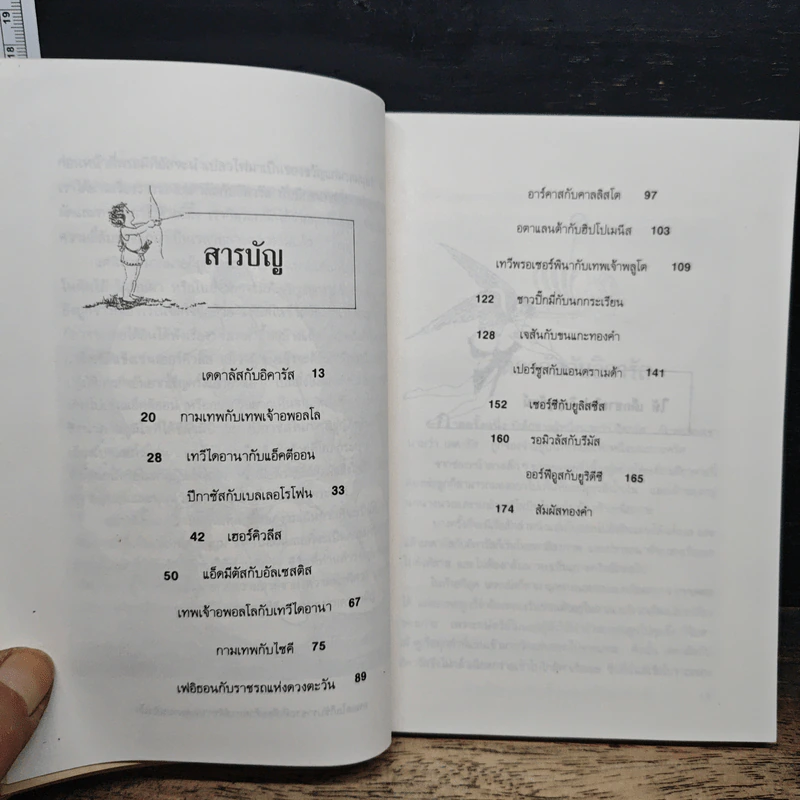 19
18
สารบัญ
เดดาลัสกับอิคารัส 13
20 กามเทพกับเทพเจ้าอพอลโล
28 เทวีไดอานากับแอ็คตีออน
ปีกาซัสกับเบลเลอโรโฟน 33
42 เฮอร์คิวลีส
50 แอ็ดมีตัสกับอัลเซสติส
เทพเจ้าอพอลโลกับเทวีไดอานา 67
กามเทพกับไซคี 75
เฟอิธอนกับราชรถแห่งดวงตะวัน 89
อาร์คาสกับคาลลิสโต 97
อตาแลนต้ากับฮิปโปเมนีส 103
เทวีพรอเซอร์พินากับเทพเจ้าพลูโต 109
122 ชาวปิ๊กมี่กับนกกระเรียน
128 เจสันกับขนแกะทองคำ
เปอร์ซูสกับแอนดราเมด้า 141
152 เซอร์ซีกับยูลิสซีส
160 รอมิวลัสกับรีมัส
ออร์ฟีอูสกับยูริดีซี 165
174 สัมผัสทองคำ